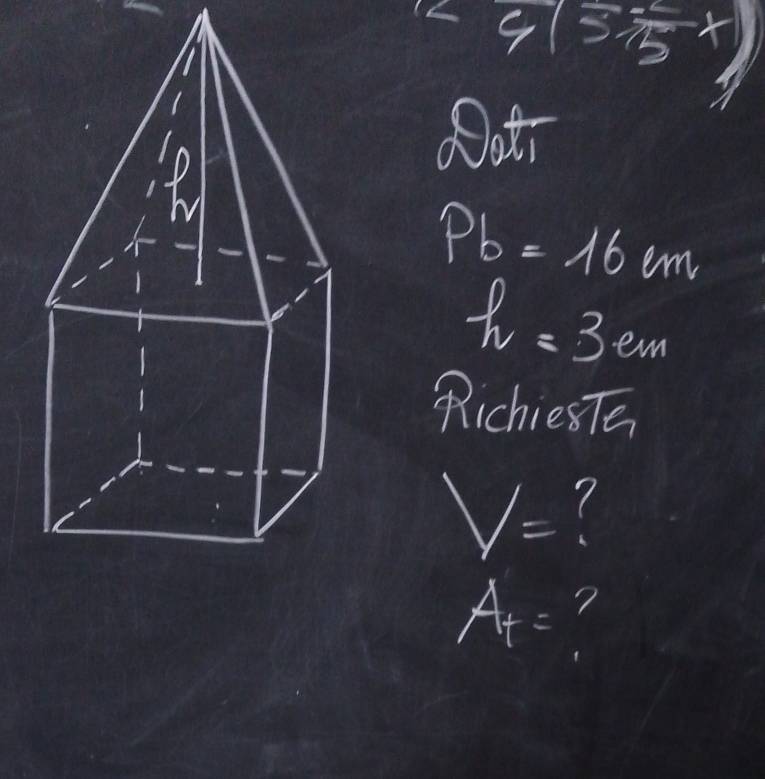 h
Dati
Pb = 16 cm
h = 3 cm
Richieste
V = ?
At = ?